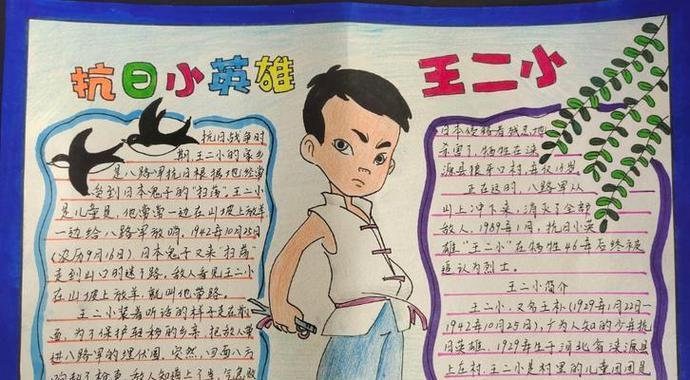 抗日小英雄
王二小
抗日战争时
期,王二小的家乡
是八路军抗日根据地,经常
受到日本鬼子的“扫荡”,王二小
是儿童团,他常常一边在山坡上放羊,
一边给八路军放哨,1942年10月25日
(农历9月16日)日本鬼子又来“扫荡”
走到山口时迷了路.敌人看见王二小
在山坡上放羊,就叫他带路.
王二小装着听话的样子走在前
面,为了保护转移的乡亲,把敌人带
进八路军的埋伏圈,突然,四面八方
响起了枪声,敌人知道上了当,气急败
日本侵略者残忍地
杀害了,牺牲在涞
源县狼牙口村,年仅13岁
正在这时,八路军从
山上冲下来,消灭了全部
敌人.1989年1月,抗日小英
雄“王二小”在牺牲46年后终被
追认为烈士。
王二小简介
王二小,又名王朴(1929年1月22日一
1942年10月25日),广为人知的少年抗
日英雄.1929年生于河北省涞源县
上庄村.王二小是村里的儿童团团员